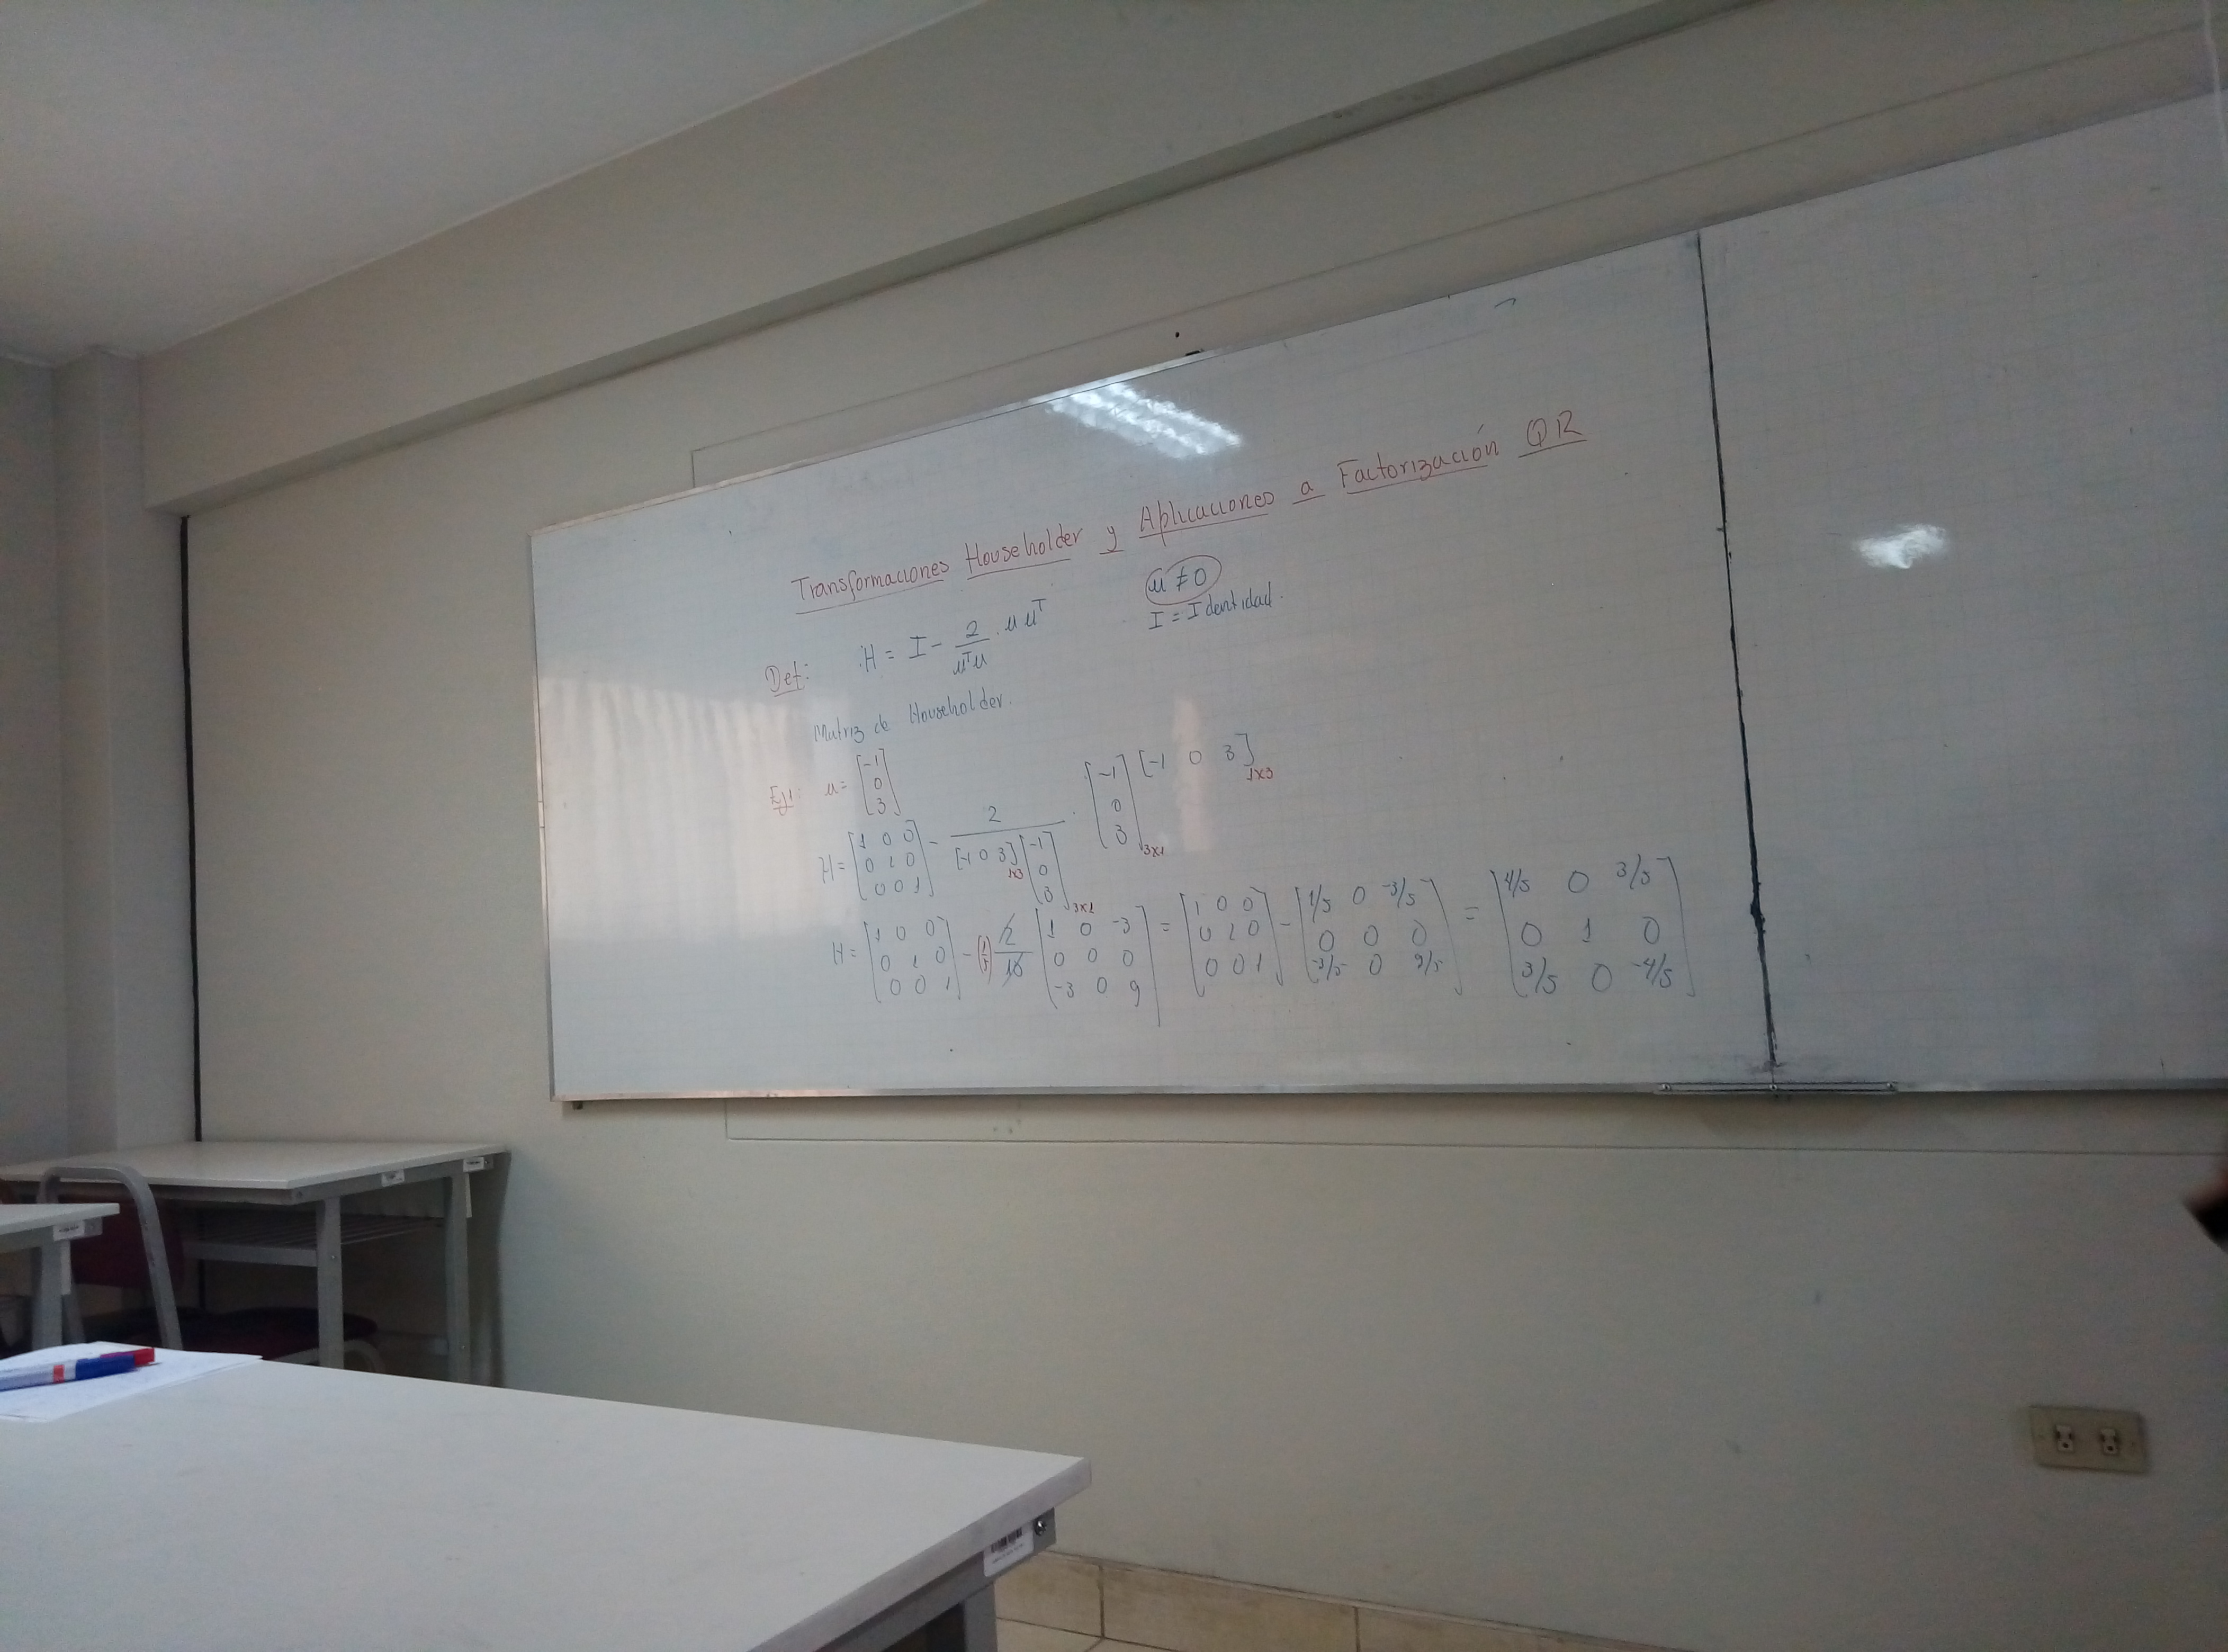 Transformaciones Householder y Aplicaciones a Factorización QR
Def: H = I - 2/(uᵀu) · u uᵀ
u ≠ 0
I = Identidad.
Matriz de Householder.
Ej1: u = [-1; 0; 3]
H = [1 0 0; 0 1 0; 0 0 1] - 2/([-1 0 3]1x3 [-1; 0; 3]3x1) · [-1; 0; 3]3x1 [-1 0 3]1x3
H = [1 0 0; 0 1 0; 0 0 1] - (1/5) 2/10 [1 0 -3; 0 0 0; -3 0 9] = [1 0 0; 0 1 0; 0 0 1] - [1/5 0 -3/5; 0 0 0; -3/5 0 9/5] = [4/5 0 3/5; 0 1 0; 3/5 0 -4/5]